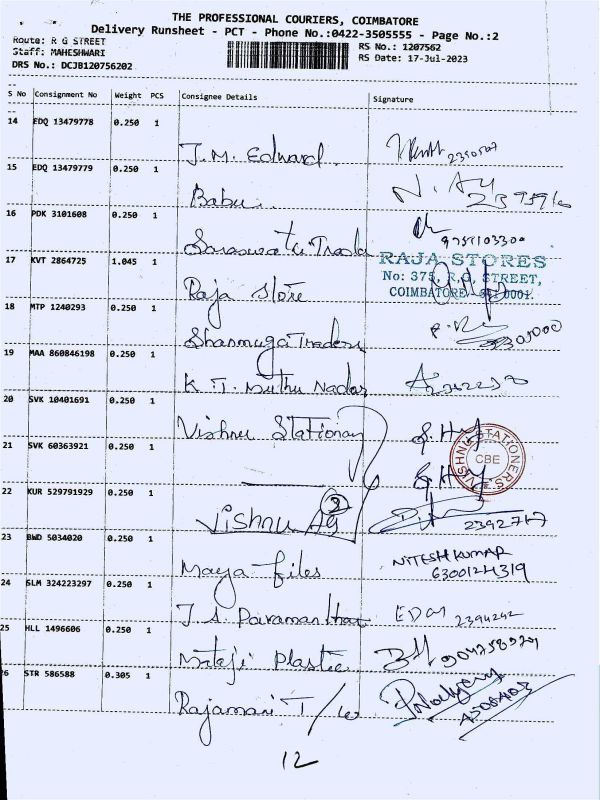 THE PROFESSIONAL COURIERS, COIMBATORE
Delivery Runsheet - PCT - Phone No.:0422-3505555 - Page No.:2
Route: R G STREET
RS No.: 1207562
Staff: MAHESHWARI
RS Date: 17-Jul-2023
DRS No.: DCJB120756202
S No Consignment No Weight PCS Consignee Details Signature
14 EDQ 13479778 0.250 1
J.M. Edward.
15 EDQ 13479779 0.250 1
Babu
16 PDK 3101608 0.250 1
9751103300
17 KVT 2864725 1.045 1
RAJA STORES
No: 375, R.G. STREET,
COIMBATORE 641 0001.
Raja Store
18 MTP 1240293 0.250 1
Shanmuga Traders
19 MAA 860846198 0.250 1
K. T. Muthu Nadar
20 SVK 10401691 0.250 1
Vishnu Stationary
VISHNU STATIONERS
CBE
21 SVK 60363921 0.250 1
22 KUR 529791929 0.250 1
Vishnu Ag 2
2392717
23 BWD 5034020 0.250 1
NITESH KUMAR
6300124319
Maya files
24 SLM 324223297 0.250 1
2394242
25 HLL 1496606 0.250 1
Mataji Plastic
26 STR 586588 0.305 1
Rajamani T/
12